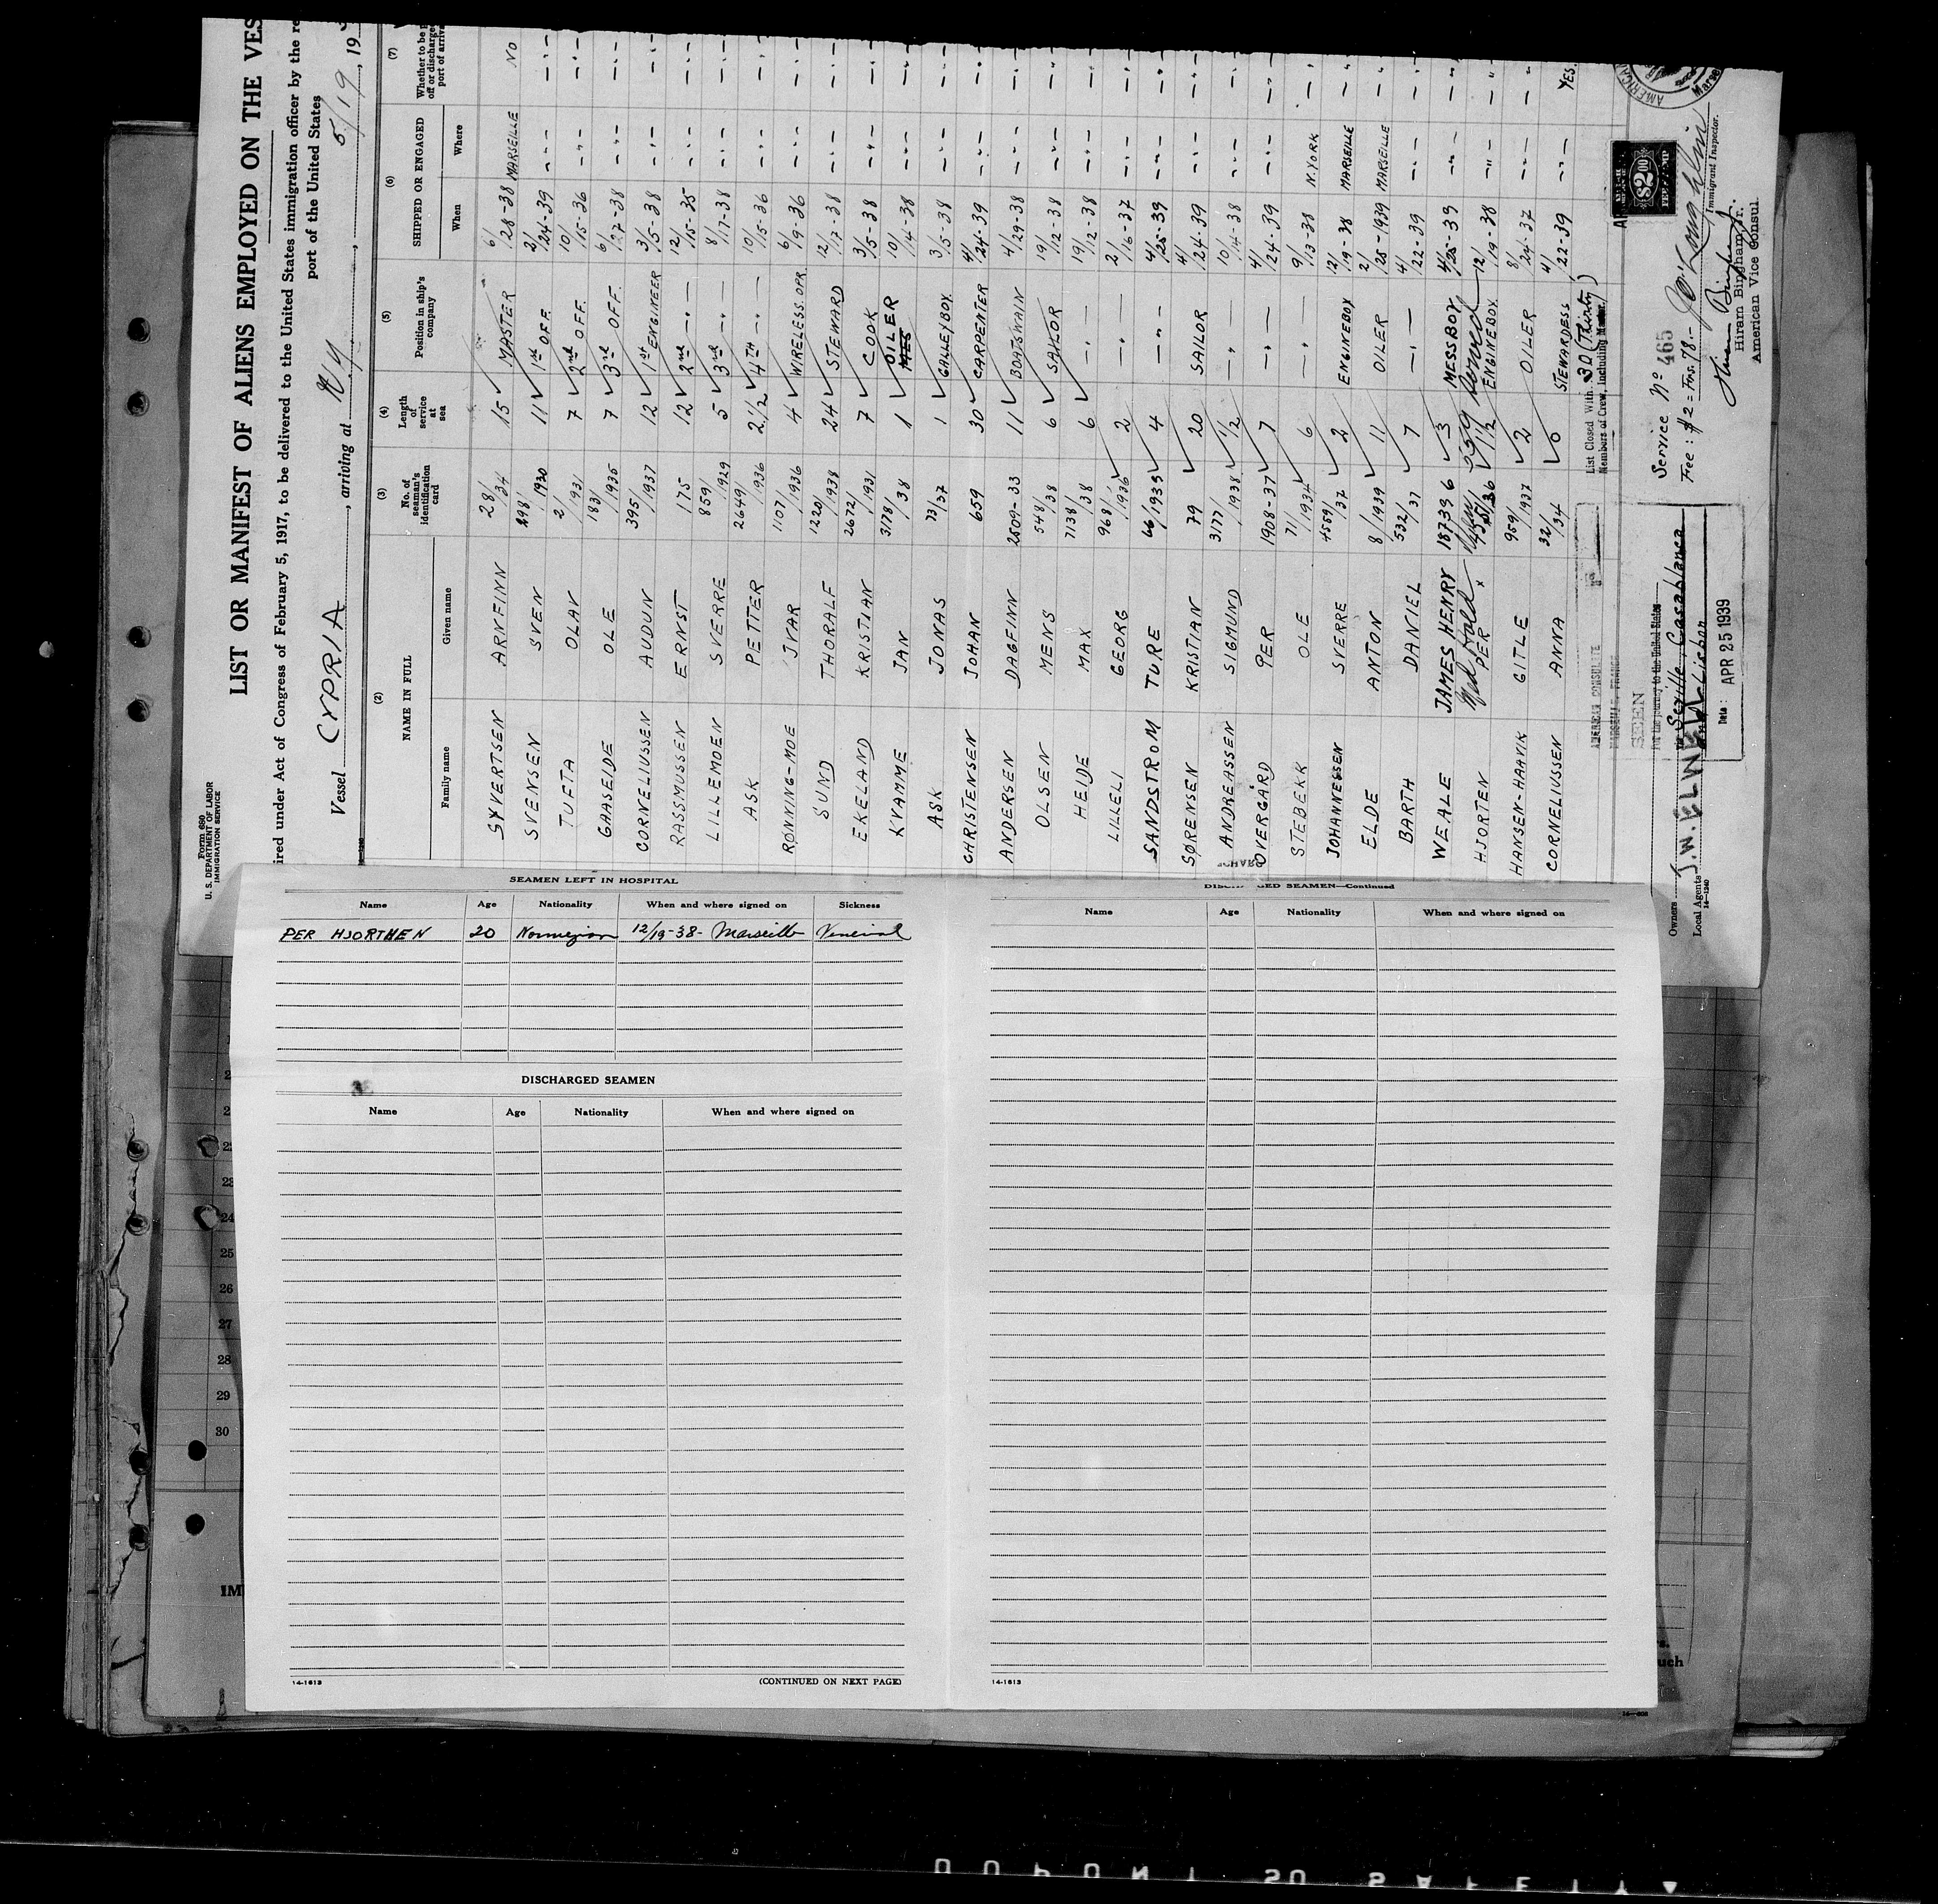 Form 680
U. S. DEPARTMENT OF LABOR
IMMIGRATION SERVICE
LIST OR MANIFEST OF ALIENS EMPLOYED ON THE VES
ired under Act of Congress of February 5, 1917, to be delivered to the United States immigration officer by the re
port of the United States
Vessel CYPRIA , arriving at N Y , 5/19 , 19
(2) (3) (4) (5) (6) (7)
NAME IN FULL No. of seaman's identification card Length of service at sea Position in ship's company SHIPPED OR ENGAGED Whether to be off or discharge port of arriva
Family name Given name When Where
SYVERTSEN ARNFINN 28/34 15 MASTER 6/28-38 MARSEILLE NO
SVENSEN SVEN 298/1930 11 1st OFF. 2/24-39 -"- -"-
TUFTA OLAV 2/1931 7 2nd OFF. 10/15-36 -"- -"-
GAASEIDE OLE 183/1935 7 3rd OFF. 6/27-38 -"- -"-
CORNELIUSSEN AUDUN 395/1937 12 1st ENGINEER 3/15-38 -"- -"-
RASSMUSSEN ERNST 175 12 2nd -"- 12/15-35 -"- -"-
LILLEMOEN SVERRE 859/1929 5 3rd -"- 8/17-38 -"- -"-
ASK PETTER 2649/1936 2 1/2 4TH -"- 10/15-36 -"- -"-
RØNNING-MOE IVAR 1107/1936 4 WIRELESS. OPR. 6/19-36 -"- -"-
SUND THORALF 1220/1938 24 STEWARD 12/17-38 -"- -"-
EKELAND KRISTIAN 2672/1931 7 COOK 3/5-38 -"- -"-
KVAMME JAN 3178/38 1 OILER 10/14-38 -"- -"-
ASK JONAS 73/37 1 GALLEYBOY 3/5-38 -"- -"-
CHRISTENSEN JOHAN 659 30 CARPENTER 4/24-39 -"- -"-
ANDERSEN DAGFINN 2509-33 11 BOATSWAIN 4/29-38 -"- -"-
OLSEN MENS 548/38 6 SAILOR 19/12-38 -"- -"-
HEIDE MAX 7138/38 6 -"- 19/12-38 -"- -"-
LILLELI GEORG 968/1936 2 -"- 2/16-37 -"- -"-
SANDSTROM TURE 66/1935 4 -"- 4/25-39 -"- -"-
SØRENSEN KRISTIAN 79 20 SAILOR 4/24-39 -"- -"-
ANDREASSEN SIGMUND 3177/1938 1/2 -"- 10/14-38 -"- -"-
ØVERGÅRD PER 1908-37 7 -"- 4/24-39 -"- -"-
STEBEKK OLE 71/1934 6 -"- 9/13-38 N.YORK -"-
JOHANNESSEN SVERRE 4559/37 2 ENGINEBOY 12/19-38 MARSEILLE -"-
ELDE ANTON 8/1939 11 OILER 2/25-1939 MARSEILLE -"-
BARTH DANIEL 532/37 7 -"- 4/22-39 -"- -"-
WEALE JAMES HENRY 187396 3 MESSBOY 4/25-39 -"- -"-
Med Hold
HJORTEN PER x 1 1/2 ENGINEBOY. 12/19-38 -"- -"-
HANSEN-HAAVIK GITLE 959/1937 2 OILER 8/24-37 -"- -"-
CORNELIUSSEN ANNA 32/34 0 STEWARDESS 4/22-39 -"- YES.
List Closed With 30 (Thirty)
Members of Crew, Including Master.
AMERICAN CONSULATE
MARSEILLE, FRANCE
SEEN
For the journey to the United States
via Seville Casablanca
and Lisbon
Date: APR 25 1939
Service No 465
Fee: $2 = Frs. 78.-
$2.00
Immigrant Inspector.
Hiram Bingham Jr.
American Vice Consul.
Owners
Local Agents J. W. ELWELL
14-1240
SEAMEN LEFT IN HOSPITAL
Name Age Nationality When and where signed on Sickness
PER HJORTHEN 20 Norwegian 12/19-38- Marseille Venerial
DISCHARGED SEAMEN
Name Age Nationality When and where signed on
14-1613
(CONTINUED ON NEXT PAGE)
GED SEAMEN—Continued
Name Age Nationality When and where signed on
14-1613
22
23
24
25
26
27
28
29
30
IM
uch
DUPONT SAFETY